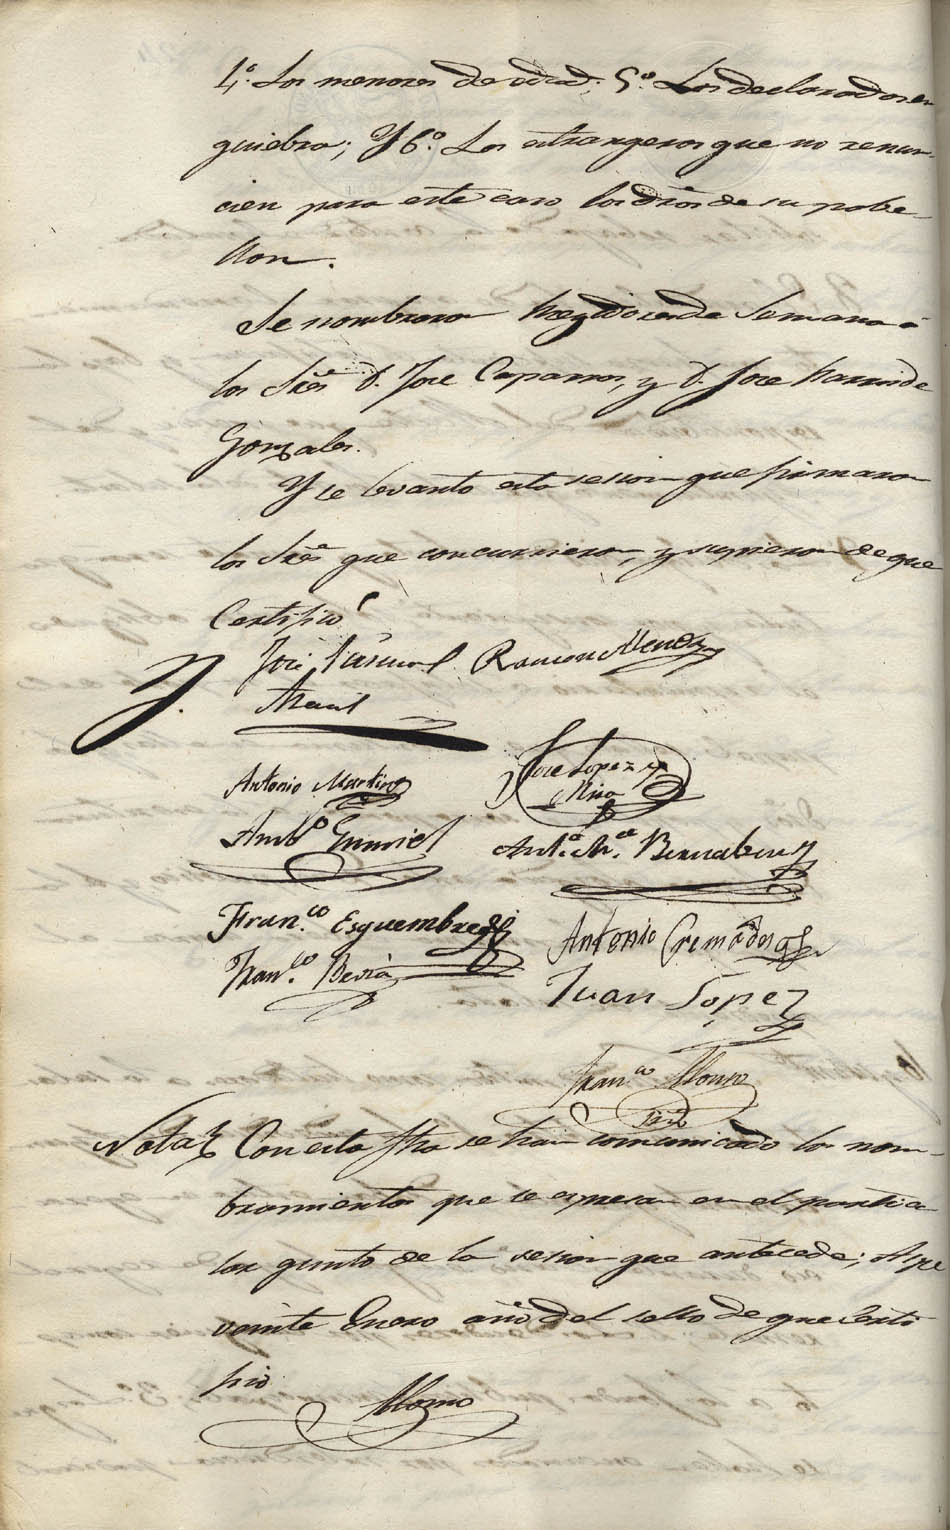 4.º Los menores de edad; 5.º Los declarados en
quiebra; Y 6.º Los estrangeros que no renun-
cien para este caso los dros de su pabe-
llon.
Se nombraron Regidores de Semana á
los Sres D. Jose Caparros, y D. Jose
Gonzales.
Y se levantó esta sesion que firmaron
los Sres que concurrieron, y supieron de que
Certifico
José Pascual Ramon Mendez
Antonio Martinez Jose Lopez y
Mira
Amb.º Gumiel Ant.º M.ª Bernabeu
Fran.co Esquembre Antonio Cremades
Fran.co Beviá Juan Lopez
Fran.co Alonso
Srio
Nota Con esta fha se han comunicado los nom-
bramientos que se espresan en el particu
lar quinto de la sesion que antecede; Aspe
veinte Enero año del sello de que Certi
fico
Alonso